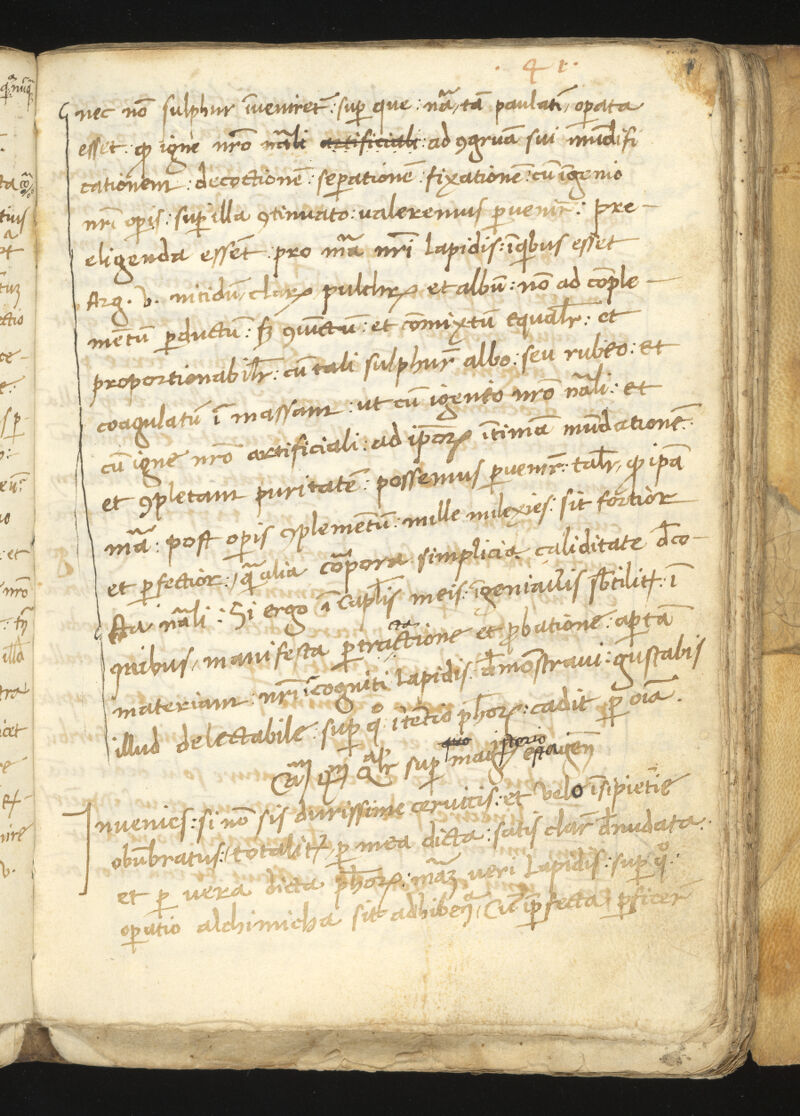 41.
nec nō sulphur īveniret̄: sup̱ que: nā̄, tā paulatī, oṗata
esset: qꝫ igne nr̄o nāli artificiali: ad ꝯgruā sui mūdifi
cationem: decoctionē: seṗationē: fixationē: cū īgenio
nr̄i oṗis: suṗ illa ꝯtinuato: valeremus ꝑvenir̄: pre-
eligenda essēt pro mā nr̄i lapidis: ī qⁱbus esset
Arg. v. nitidū, clarꝝ pulchrꝝ et albū: nō ad cōple-
mētū ꝑductū: sꝫ ꝯiūctū: et cōmixtū equalr̄: et
proportionabilr̄: cū tali sulphur̄ albo: seu rubeo: et
coagulatū ī massam: ut cū īgenio nr̄o nāli: et
cū igne nr̄o artificiali: ad ip̄oꝝ ītimā mūdationē:
et ꝯpletam puritatē: possemus ꝑvenir̄: talr̄, qꝫ ip̄a
mā: post oṗis ꝯplemētū: mille milexies: sit fortior
et ꝑfectior: qā alia corpora simplicia caliditate d̄co-
cta nāli: Si ergo ī capl̄is meis: īgeniaĩlis sbtilitꝫ: ī
quibus, manifesta ꝑtractione et ꝓbatione: aꝑtā
materiam: nr̄i īcogniti lapidis: d̄mostravi: gustabis
illud delectabile: suꝑ qͦ ītētio ph̄oꝝ: cadit ꝑ oīa.
suꝑ quo magisterio est agēdū
Invenies: si nō sis durissime cervicis: et velo īsipiētie
obūbratus: totalitꝫ ꝑ mea dicta: satis clar̄ d̄nudata:
et ꝑ vera dicta ph̄oꝝ: māꝫ veri lapidis: suꝑ qͦ:
oꝑatio alchimicha sit adhibēā, cū īꝑfecta ꝑficer̄